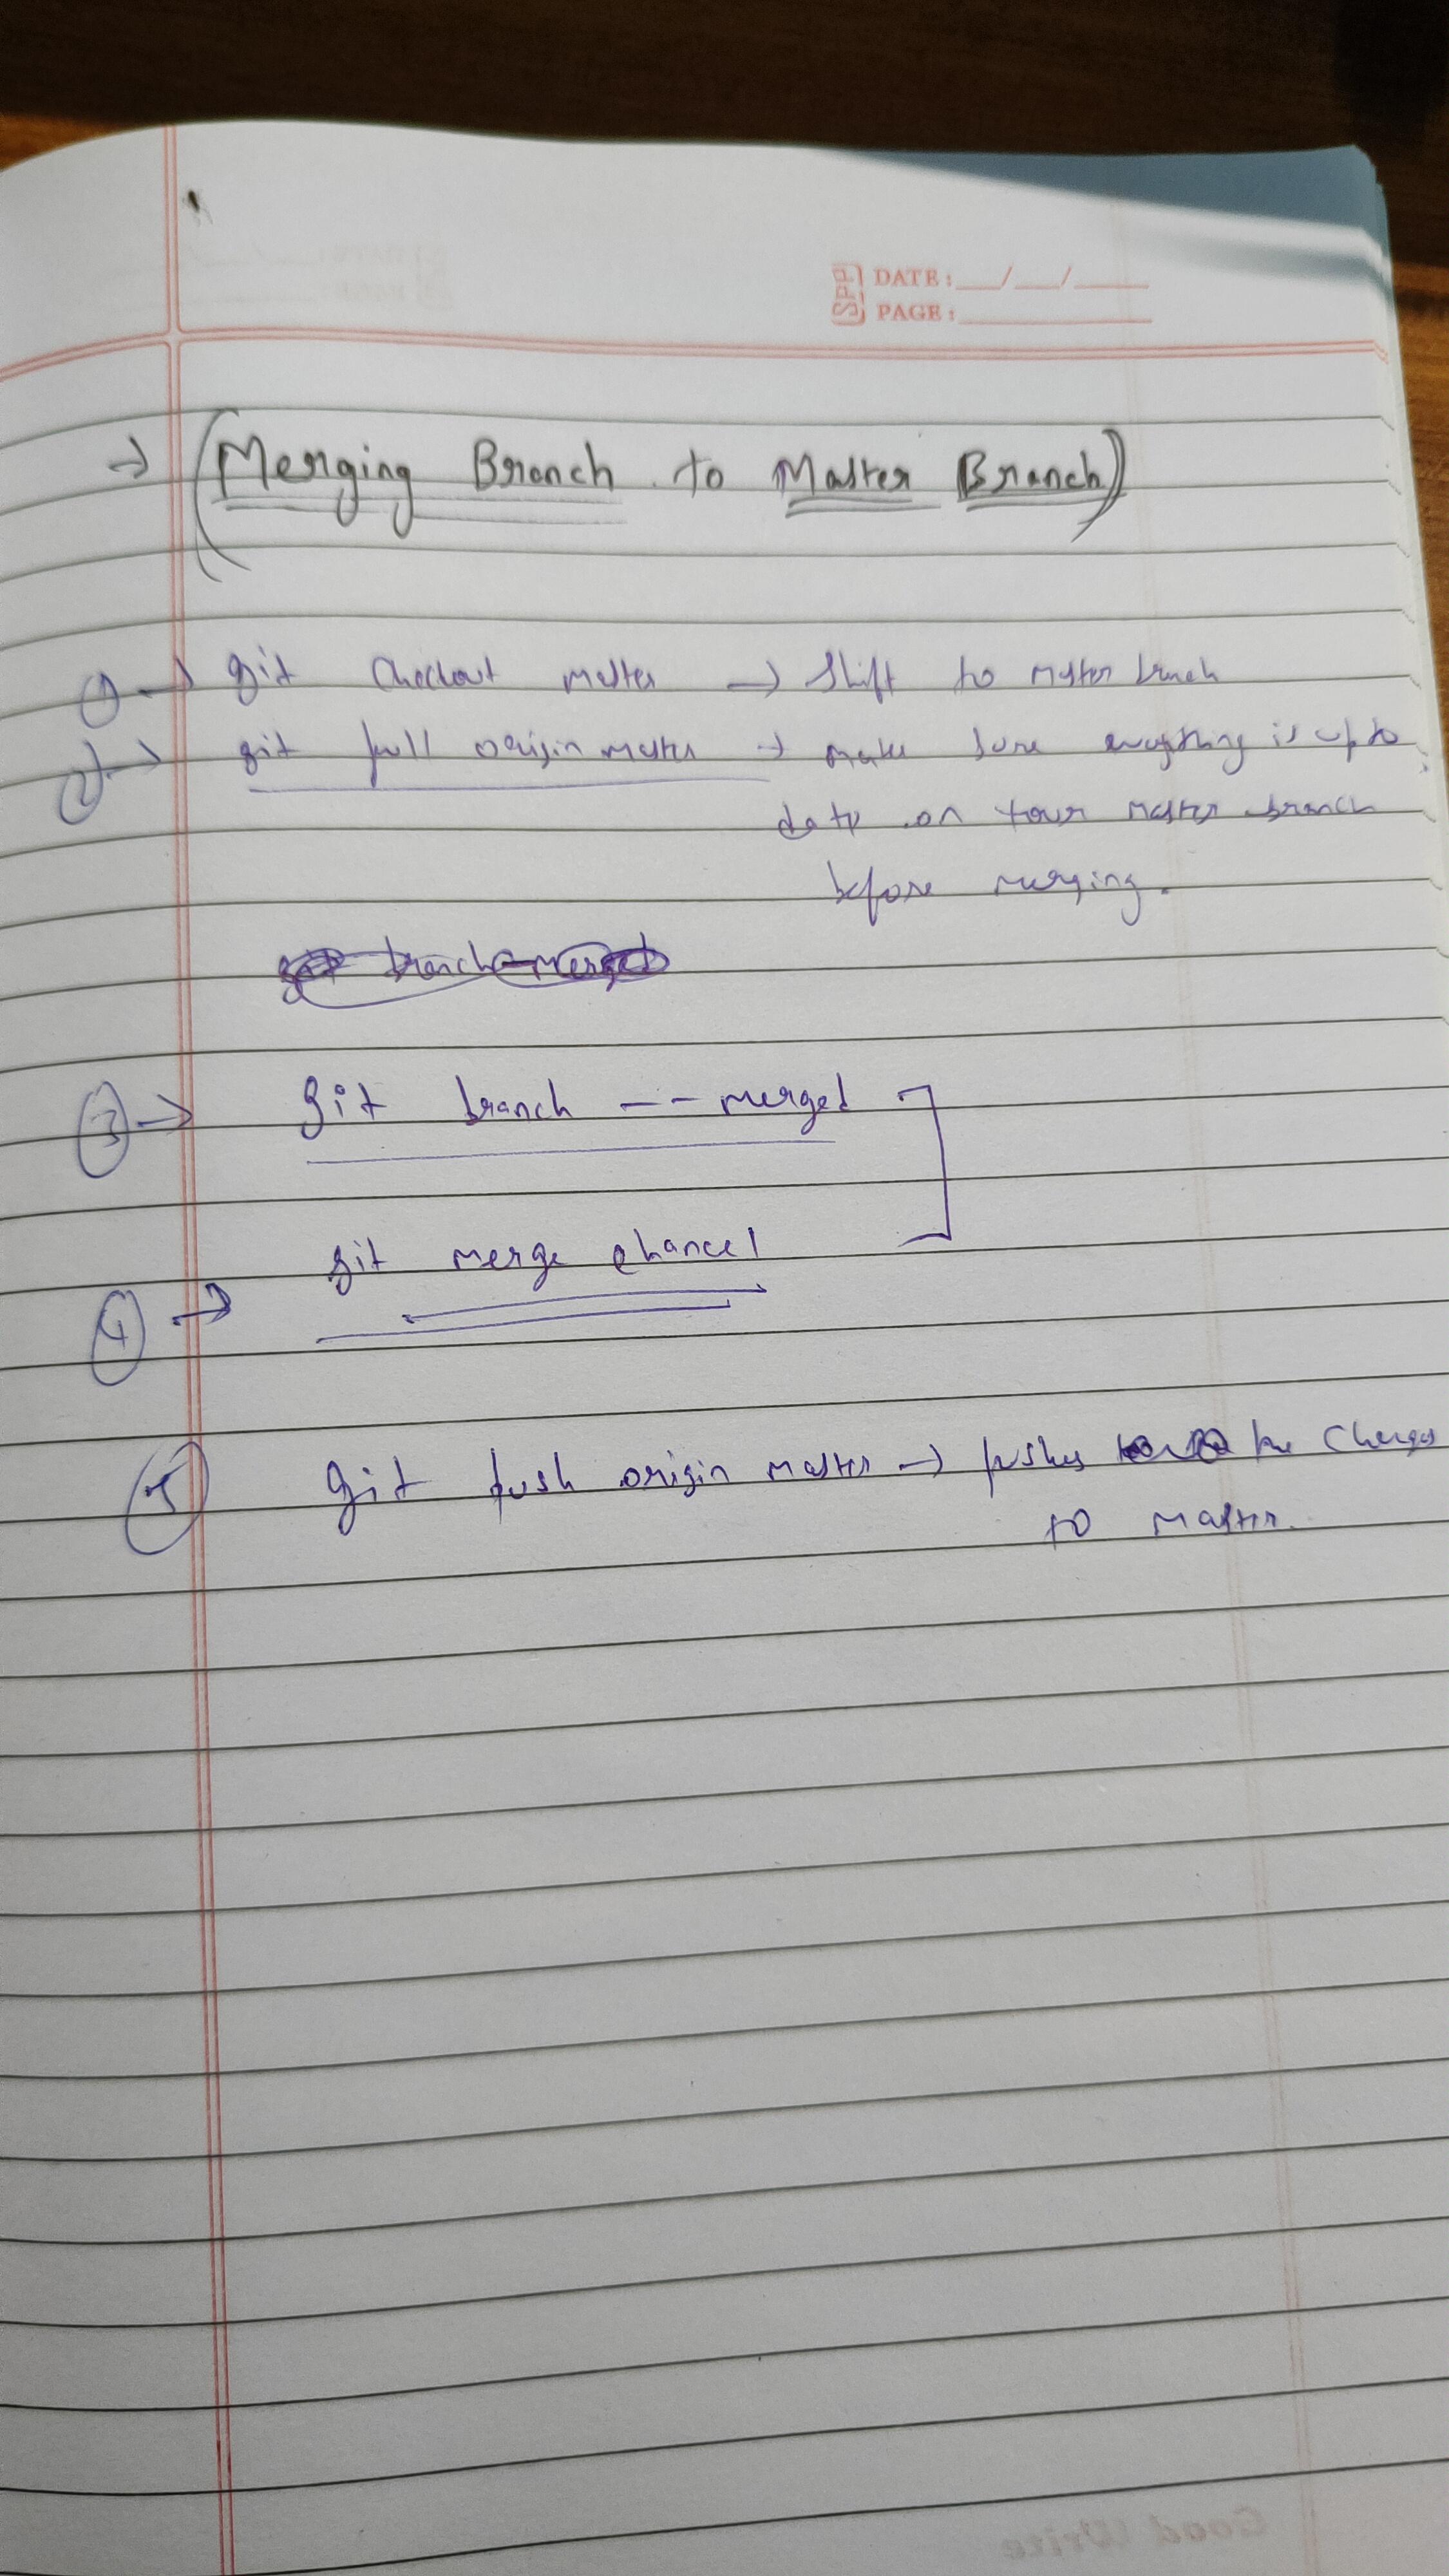 SFPL DATE : __/__/____
PAGE : ________
→ (Merging Branch to Master Branch)
① → git checkout master → shift to master branch
② → git pull origin master → make sure everything is up to
date on your master branch
before merging.
git branch -- merged
③ → git branch -- merged
④ → git merge chance1
⑤ git push origin master → pushes the changes
to master.
Good Write